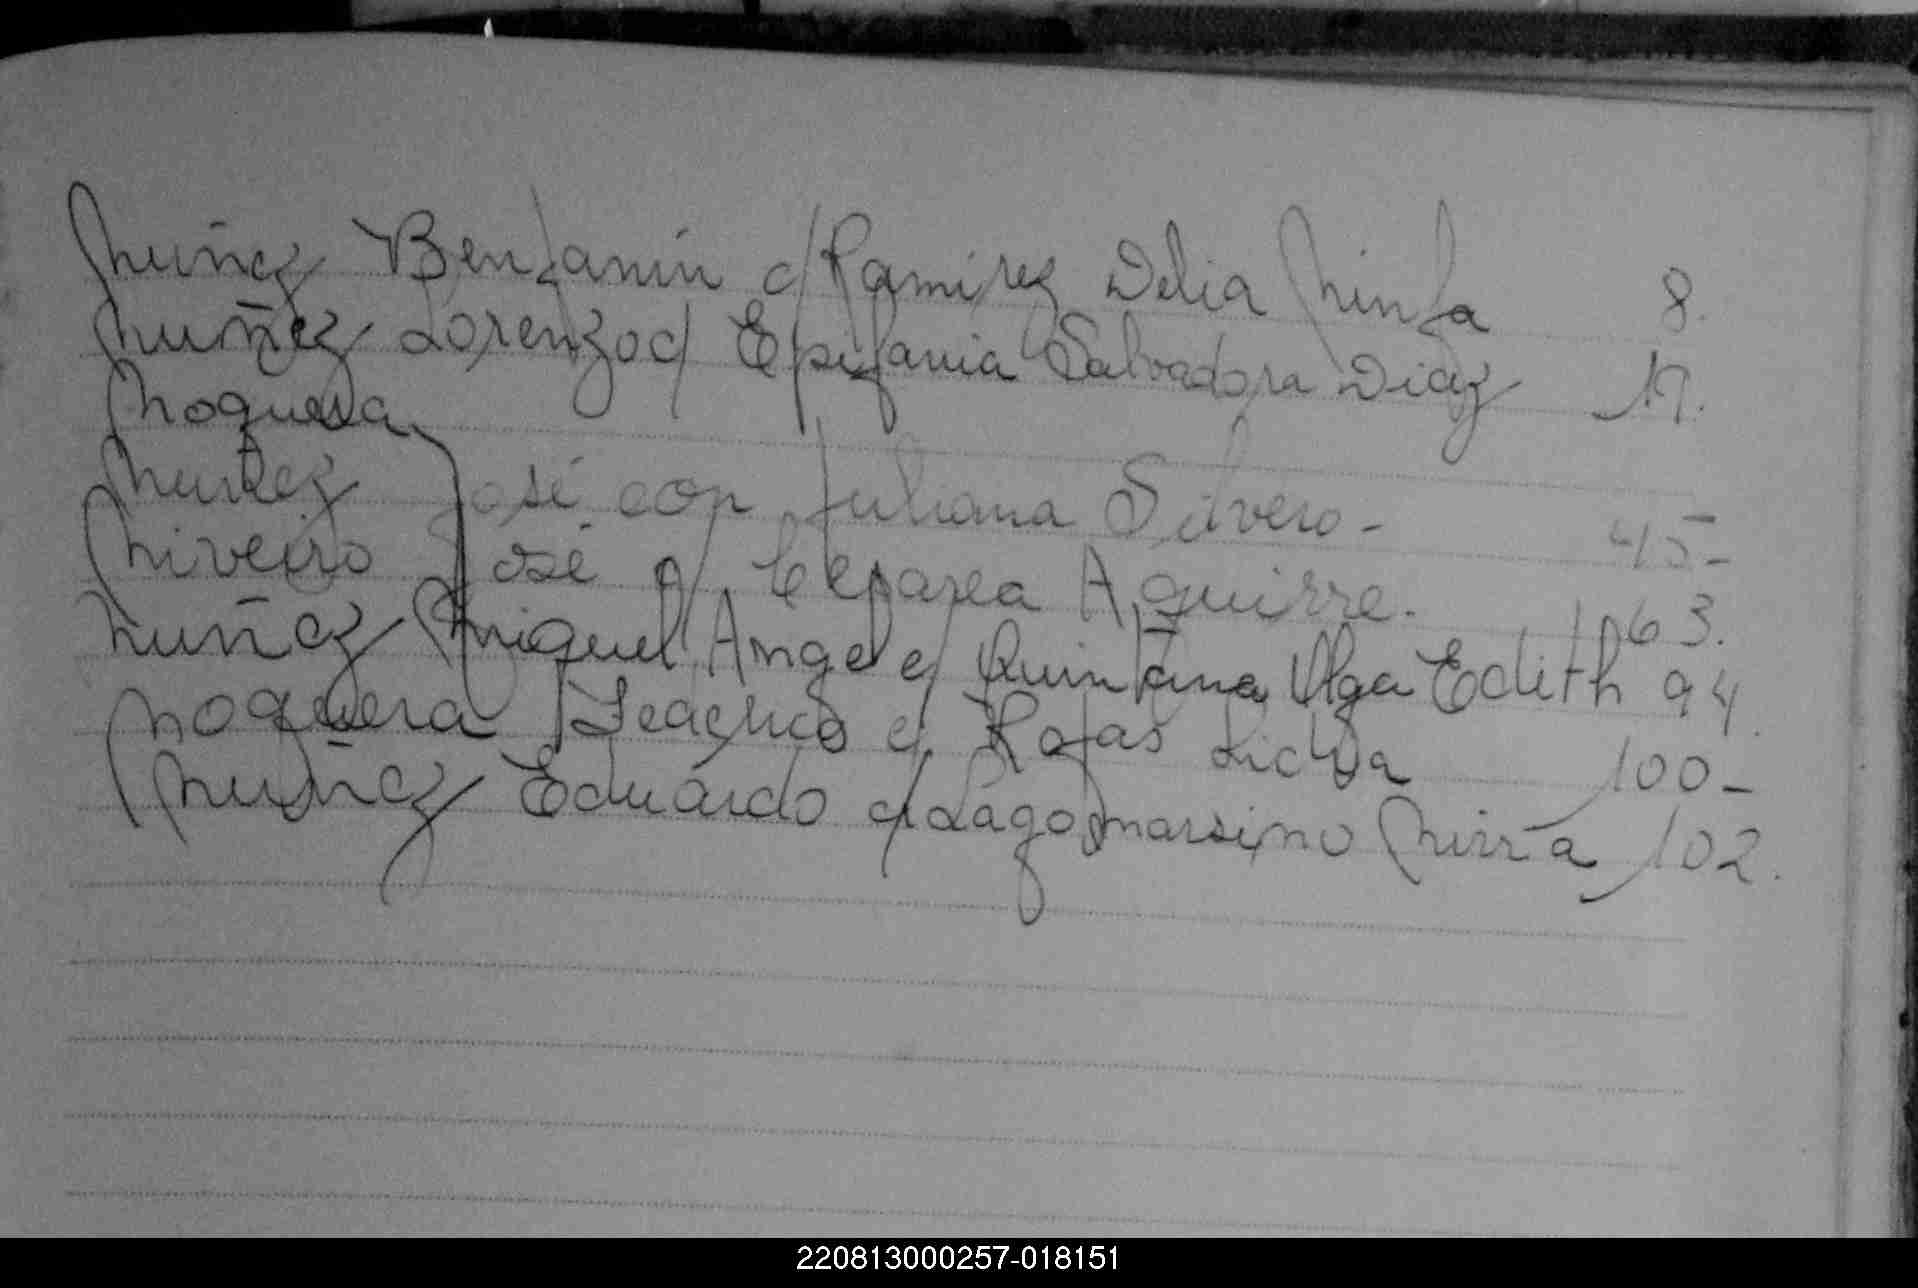 Nuñez Benjamín c/ Ramirez Delia Ninfa 8.
Nuñez Lorenzo c/ Epifania Salvadora Diaz 19.
Noguera
Nuñez José con Juliana Silvero - 45-
Niveiro José c/ Cesarea Aguirre. 63.
Nuñez Miguel Angel c/ Quintana Olga Edith 94
Noguera Federico c/ Rojas Lidia 100-
Nuñez Eduardo c/ Lagomarsino Nirra 102.
220813000257-018151